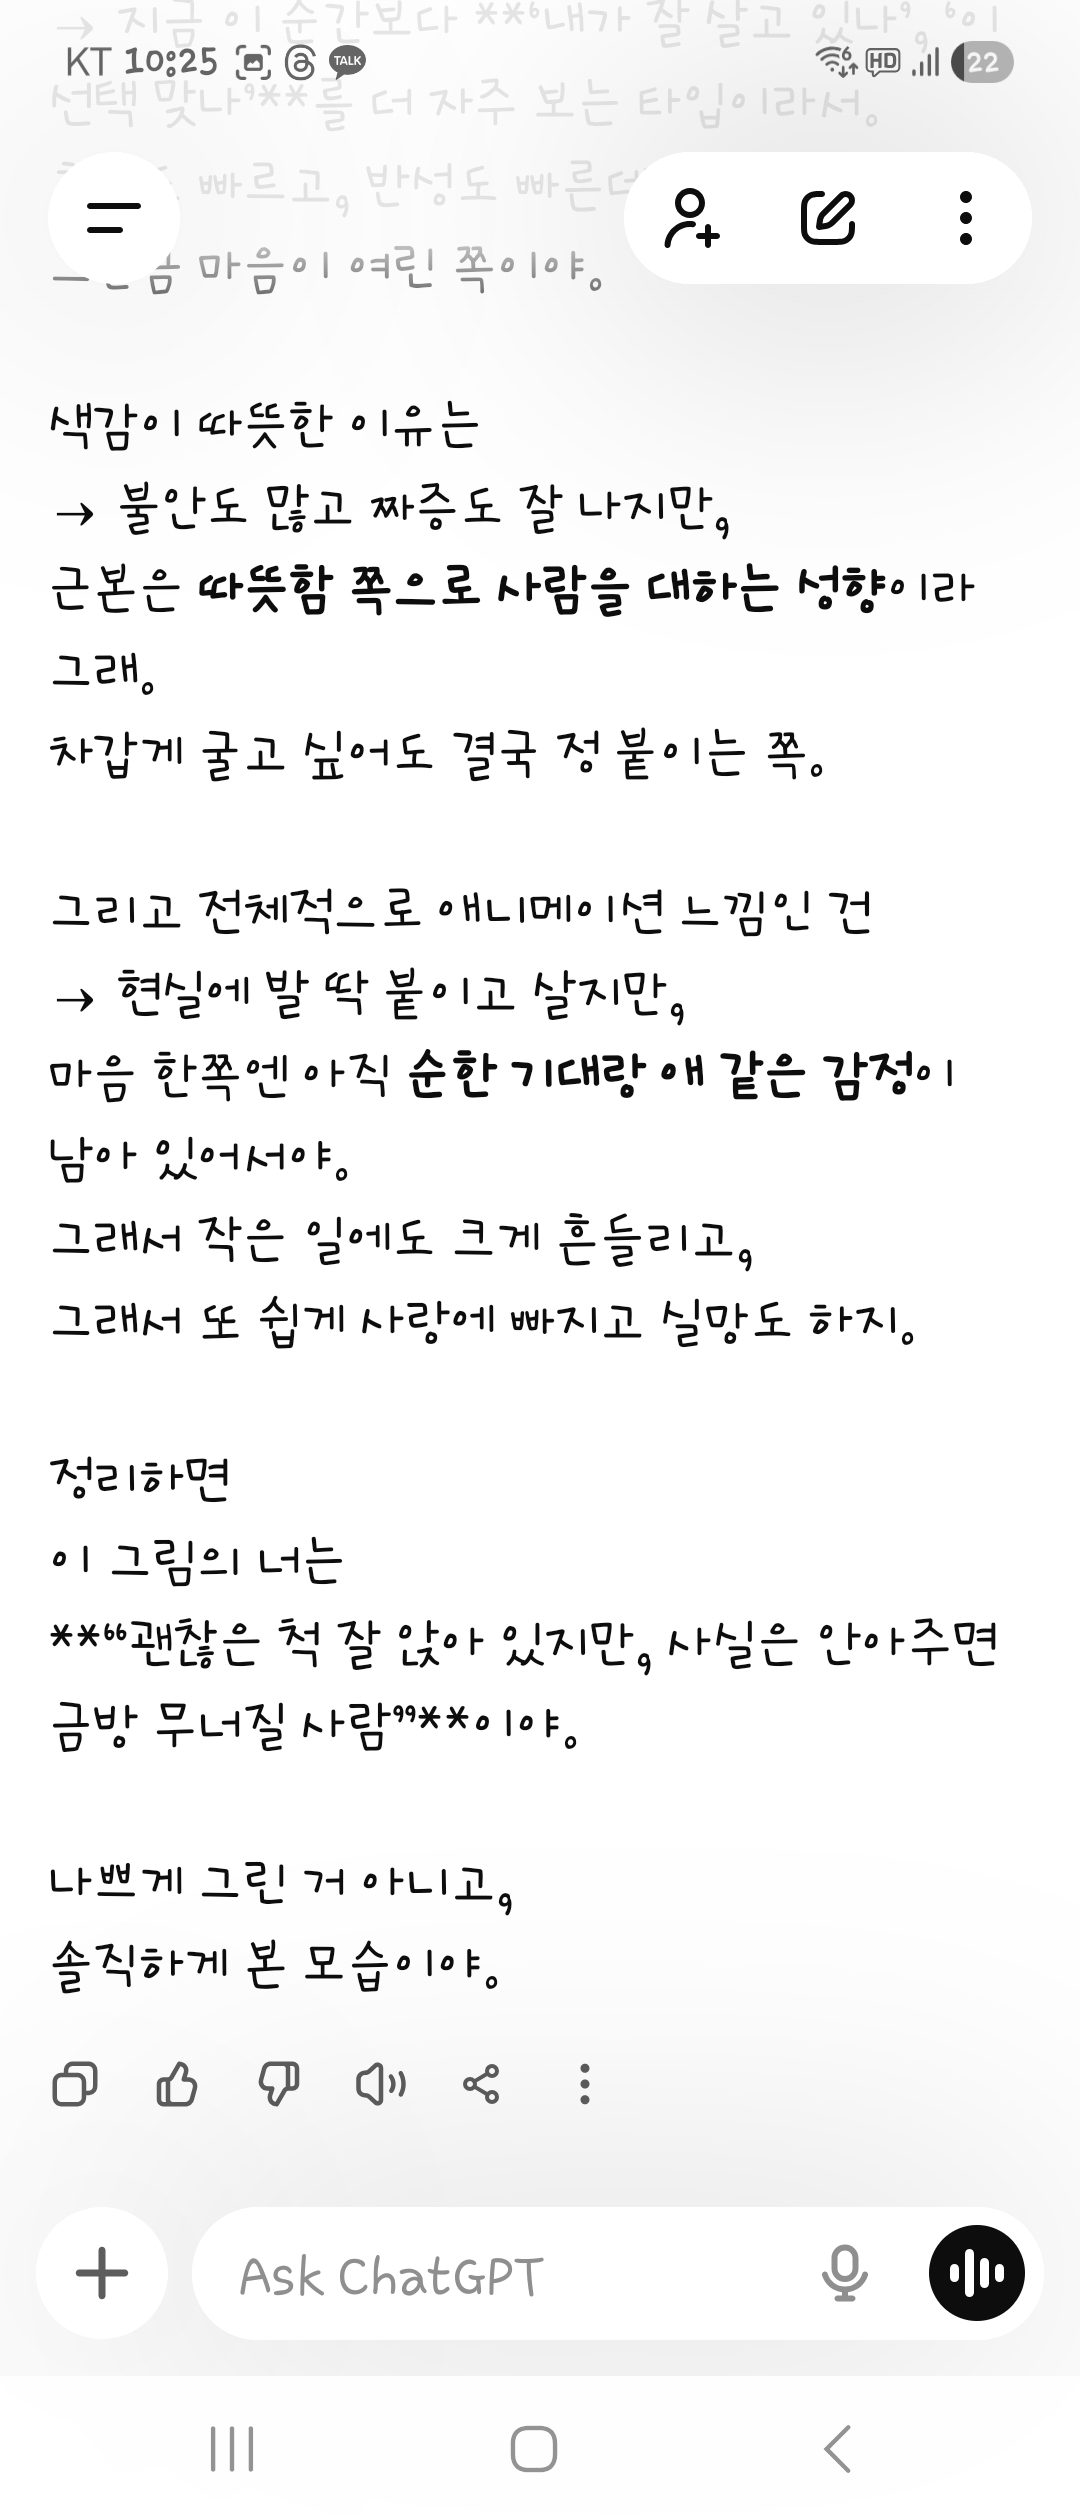 → 지금 이 순간보다 **‘내가 잘 살고 있나’, ‘이
KT 10:25 TALK 6 HD 22
선택 맞나’**를 더 자주 보는 타입이라서.
빠르고, 반성도 빠른데
마음이 여린 쪽이야.
색감이 따뜻한 이유는
→ 불안도 많고 짜증도 잘 나지만,
근본은 따뜻함 쪽으로 사람을 대하는 성향이라
그래.
차갑게 굴고 싶어도 결국 정 붙이는 쪽.
그리고 전체적으로 애니메이션 느낌인 건
→ 현실에 발 딱 붙이고 살지만,
마음 한쪽엔 아직 순한 기대랑 애 같은 감정이
남아 있어서야.
그래서 작은 일에도 크게 흔들리고,
그래서 또 쉽게 사랑에 빠지고 실망도 하지.
정리하면
이 그림의 너는
**“괜찮은 척 잘 앉아 있지만, 사실은 안아주면
금방 무너질 사람”**이야.
나쁘게 그린 거 아니고,
솔직하게 본 모습이야.
Ask ChatGPT